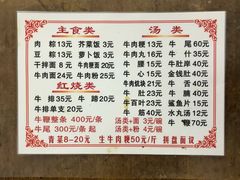 主食类
肉粽13元 芥菜饭3元
豆粽13元 萝卜饭3元
干拌面8元 牛肉粳面20元
牛肉面24元 牛肉粉25元
红烧类
牛排35元 牛蹄20元
牛排单支20元
牛鞭整条400元/条
牛尾300元/条起
汤类
牛肉粳13元 牛尾60元
牛肉丸16元 牛什35元
牛排35元 牛心35元
牛肚35元 金钱肚35元
牛肉肌块21元 牛舌35元
牛肚35元 牛肉35元
牛百叶23元 鲨鱼片15元
牛筋40元 水丸汤12元
汤类+面3元/碗 牛鞭70元
汤类+粉4元/碗
青菜8-20元 生牛肉粳50元/斤 拼盘面议